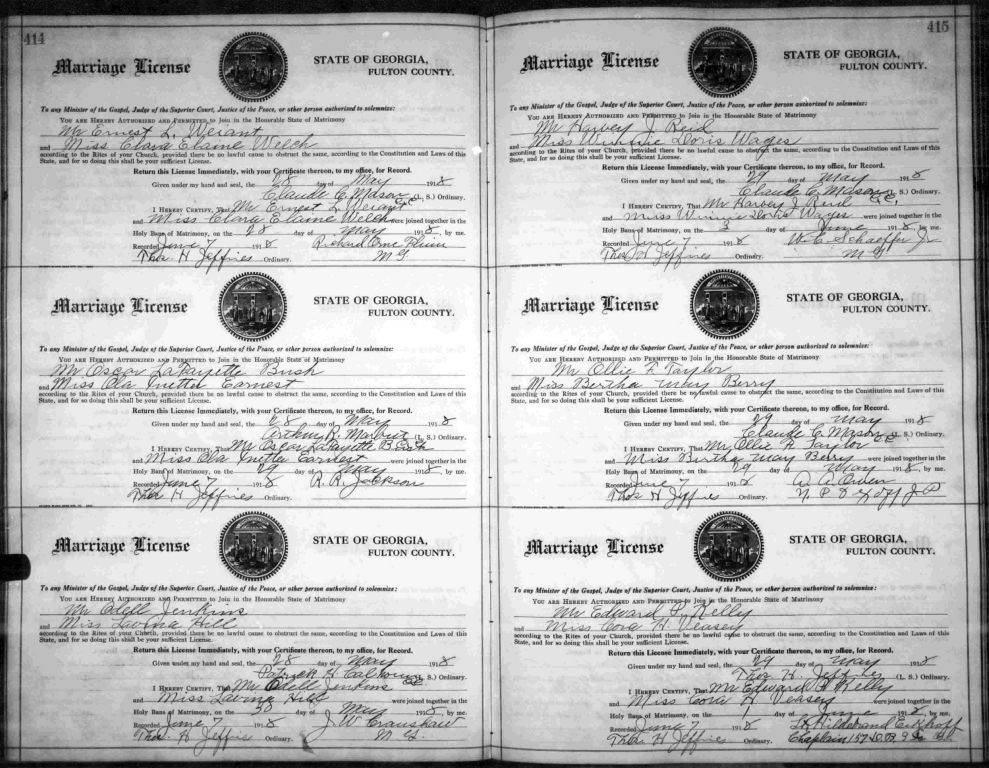 414
Marriage License
STATE OF GEORGIA,
FULTON COUNTY.
To any Minister of the Gospel, Judge of the Superior Court, Justice of the Peace, or other person authorized to solemnize:
YOU ARE HEREBY AUTHORIZED AND PERMITTED to Join in the Honorable State of Matrimony
Mr Ernest L. Weiant
and Miss Clara Elaine Welch
according to the Rites of your Church, provided there be no lawful cause to obstruct the same, according to the Constitution and Laws of this
State, and for so doing this shall be your sufficient License.
Return this License Immediately, with your Certificate thereon, to my office, for Record.
Given under my hand and seal, the 28 day of May 1918
Claude C. Mason (L. S.) Ordinary.
I HEREBY CERTIFY, That Mr Ernest L. Weiant
and Miss Clara Elaine Welch were joined together in the
Holy Bans of Matrimony, on the 28 day of May 1918, by me.
Recorded June 7 1918 Richard Orme Flinn
Thos. H. Jeffries Ordinary. M G.
Marriage License
STATE OF GEORGIA,
FULTON COUNTY.
To any Minister of the Gospel, Judge of the Superior Court, Justice of the Peace, or other person authorized to solemnize:
YOU ARE HEREBY AUTHORIZED AND PERMITTED to Join in the Honorable State of Matrimony
Mr Oscar LaFayette Bush
and Miss Ola Inetta Earnest
according to the Rites of your Church, provided there be no lawful cause to obstruct the same, according to the Constitution and Laws of this
State, and for so doing this shall be your sufficient License.
Return this License Immediately, with your Certificate thereon, to my office, for Record.
Given under my hand and seal, the 28 day of May 1918
Arthur R. Marbut (L. S.) Ordinary.
I HEREBY CERTIFY, That Mr Oscar LaFayette Bush
and Miss Ola Inetta Earnest were joined together in the
Holy Bans of Matrimony, on the 29 day of May 1918, by me.
Recorded June 7 1918 R. R. Jackson
Thos H Jeffries Ordinary.
Marriage License
STATE OF GEORGIA,
FULTON COUNTY.
To any Minister of the Gospel, Judge of the Superior Court, Justice of the Peace, or other person authorized to solemnize:
YOU ARE HEREBY AUTHORIZED AND PERMITTED to Join in the Honorable State of Matrimony
Mr Odell Jenkins
and Miss Lavina Hill
according to the Rites of your Church, provided there be no lawful cause to obstruct the same, according to the Constitution and Laws of this
State, and for so doing this shall be your sufficient License.
Return this License Immediately, with your Certificate thereon, to my office, for Record.
Given under my hand and seal, the 28 day of May 1918
Patrick H. Calhoun (L. S.) Ordinary.
I HEREBY CERTIFY, That Mr Odell Jenkins
and Miss Lavina Hill were joined together in the
Holy Bans of Matrimony, on the 30 day of May 1918, by me.
Recorded June 7 1918 J. W. Cranshaw
Thos. H Jeffries Ordinary. M G.
415
Marriage License
STATE OF GEORGIA,
FULTON COUNTY.
To any Minister of the Gospel, Judge of the Superior Court, Justice of the Peace, or other person authorized to solemnize:
YOU ARE HEREBY AUTHORIZED AND PERMITTED to Join in the Honorable State of Matrimony
Mr Harvey J. Reid
and Miss Winnie Doris Wages
according to the Rites of your Church, provided there be no lawful cause to obstruct the same, according to the Constitution and Laws of this
State, and for so doing this shall be your sufficient License.
Return this License Immediately, with your Certificate thereon, to my office, for Record.
Given under my hand and seal, the 29 day of May 1918
Claude C. Mason (L. S.) Ordinary.
I HEREBY CERTIFY, That Mr Harvey J Reid
and Miss Winnie Doris Wages were joined together in the
Holy Bans of Matrimony, on the 3 day of June 1918, by me.
Recorded June 7 1918 W. C. Schaeffer Jr
Thos H Jeffries Ordinary. M G
Marriage License
STATE OF GEORGIA,
FULTON COUNTY.
To any Minister of the Gospel, Judge of the Superior Court, Justice of the Peace, or other person authorized to solemnize:
YOU ARE HEREBY AUTHORIZED AND PERMITTED to Join in the Honorable State of Matrimony
Mr Ollie F. Taylor
and Miss Bertha May Berry
according to the Rites of your Church, provided there be no lawful cause to obstruct the same, according to the Constitution and Laws of this
State, and for so doing this shall be your sufficient License.
Return this License Immediately, with your Certificate thereon, to my office, for Record.
Given under my hand and seal, the 29 day of May 1918
Claude C. Mason (L. S.) Ordinary.
I HEREBY CERTIFY, That Mr Ollie F. Taylor
and Miss Bertha May Berry were joined together in the
Holy Bans of Matrimony, on the 29 day of May 1918, by me.
Recorded June 7 1918 A. A. Owen
Thos H Jeffries Ordinary. N. P. & J P
Marriage License
STATE OF GEORGIA,
FULTON COUNTY.
To any Minister of the Gospel, Judge of the Superior Court, Justice of the Peace, or other person authorized to solemnize:
YOU ARE HEREBY AUTHORIZED AND PERMITTED to Join in the Honorable State of Matrimony
Mr Edward P. Kelly
and Miss Cora H. Veasey
according to the Rites of your Church, provided there be no lawful cause to obstruct the same, according to the Constitution and Laws of this
State, and for so doing this shall be your sufficient License.
Return this License Immediately, with your Certificate thereon, to my office, for Record.
Given under my hand and seal, the 29 day of May 1918
Thos H. Jeffries (L. S.) Ordinary.
I HEREBY CERTIFY, That Mr Edward P. Kelly
and Miss Cora H. Veasey were joined together in the
Holy Bans of Matrimony, on the day of June 1918, by me.
Recorded June 7 1918 Hildebrand
Thos. H Jeffries Ordinary. Chaplain 157